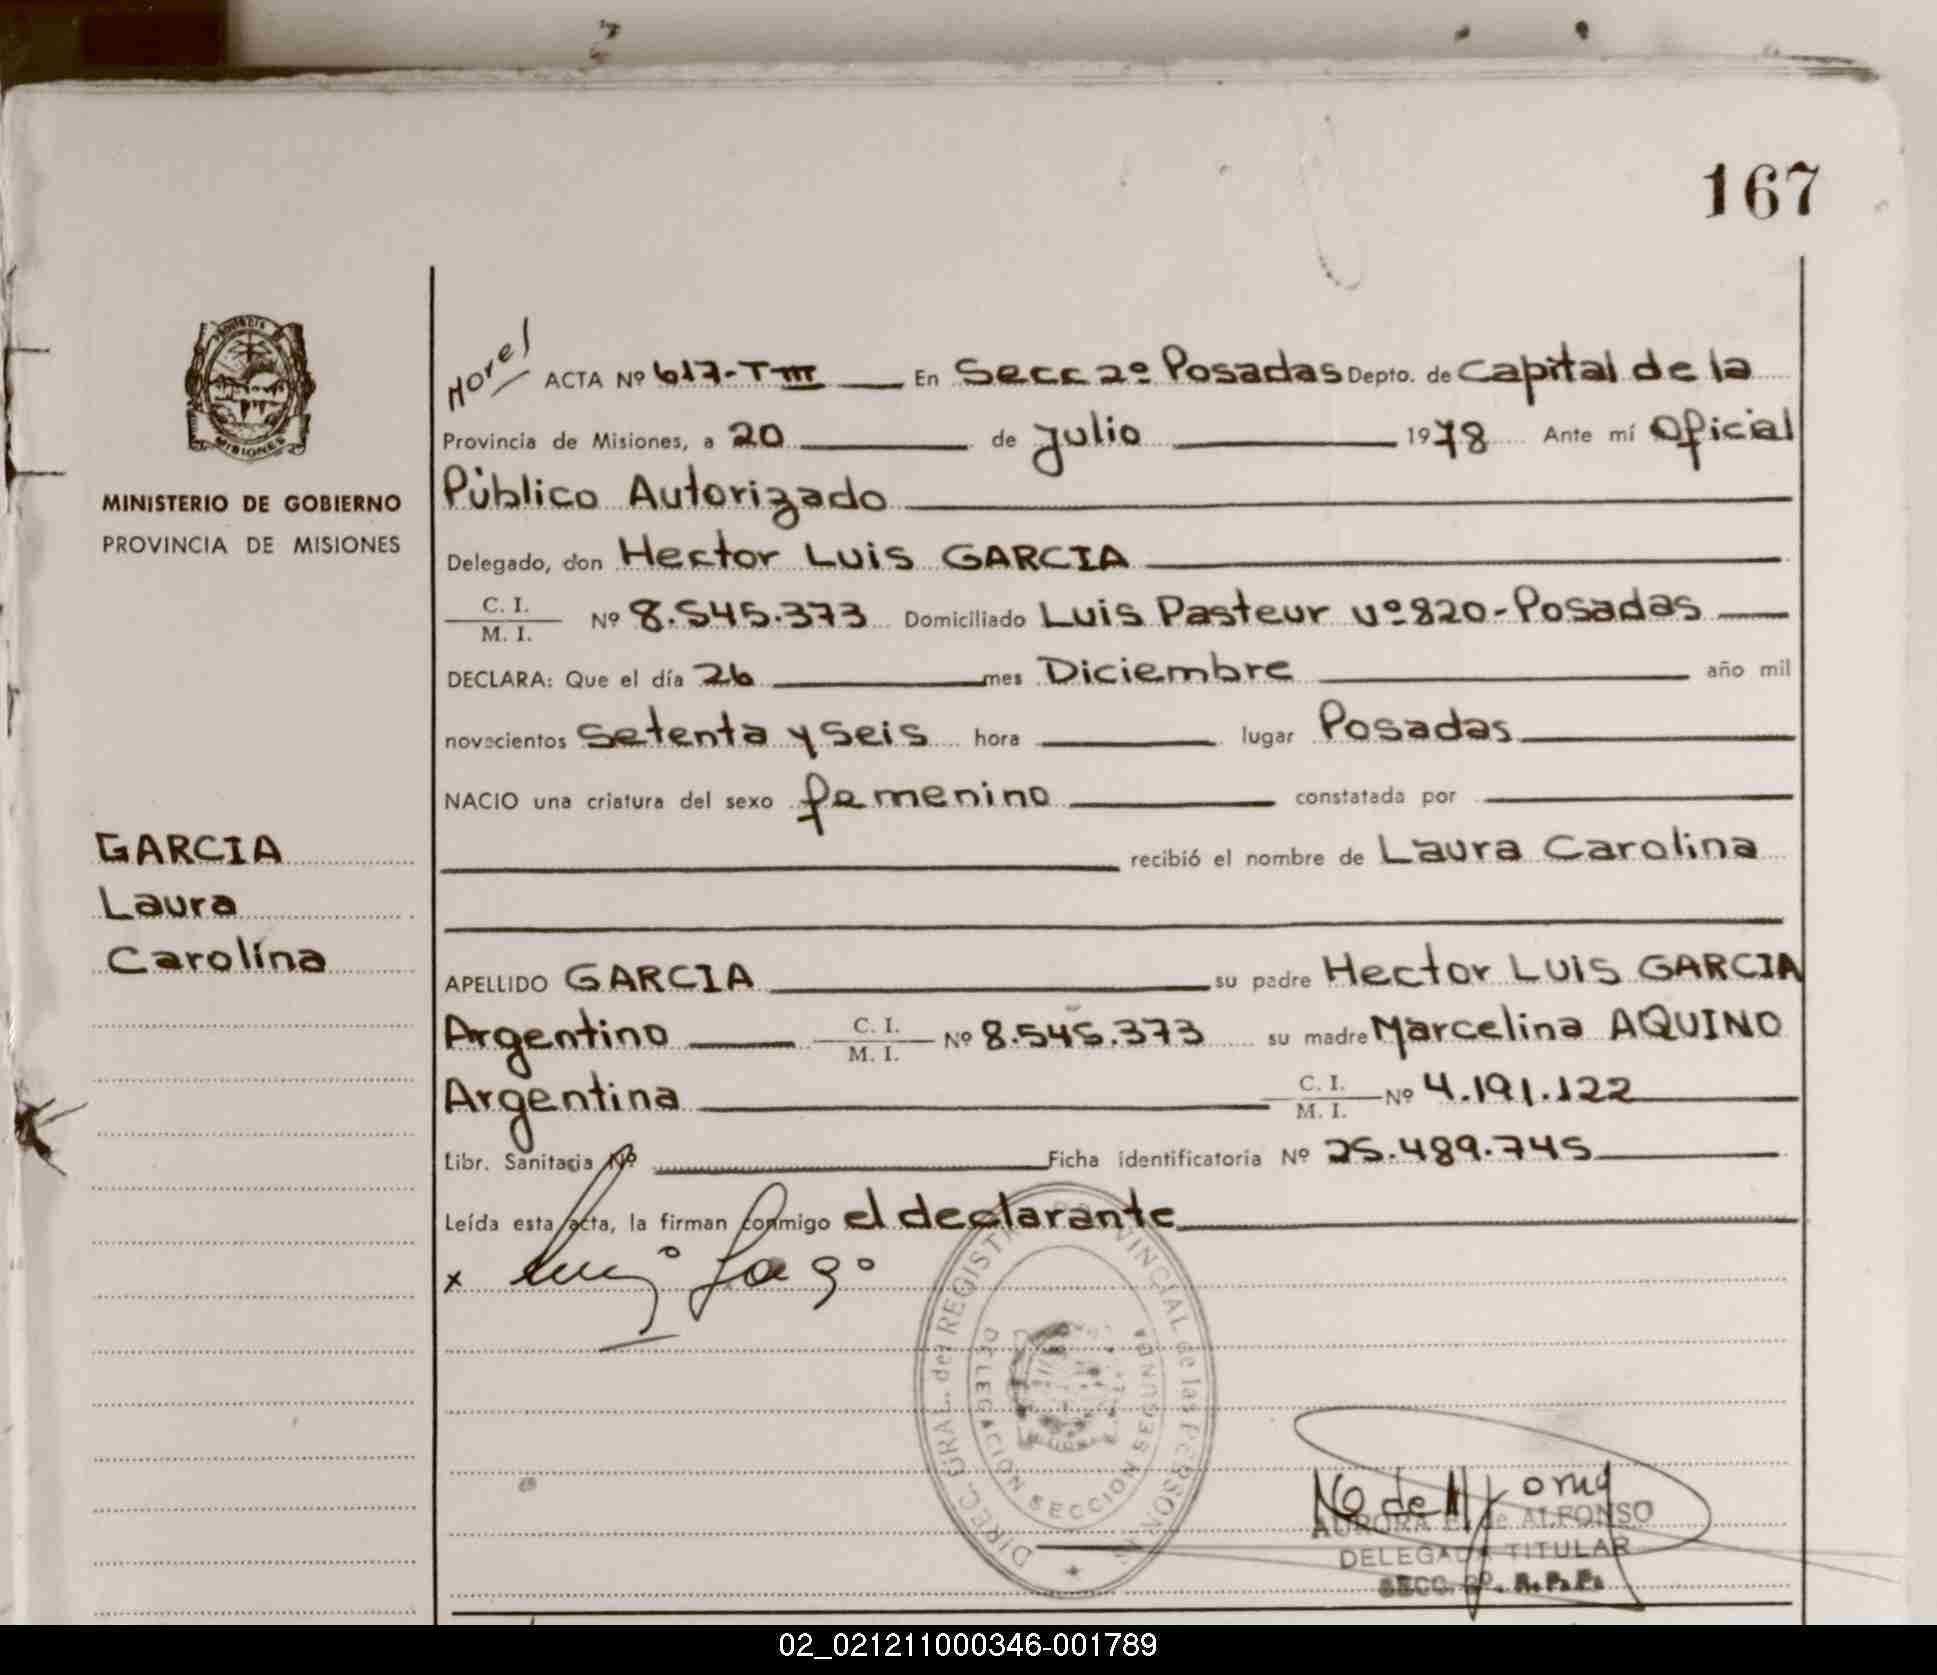 167
Morel
ACTA Nº 617-T III En Secc 2º Posadas Depto. de Capital de la
Provincia de Misiones, a 20 de Julio 1978 Ante mí Oficial
Público Autorizado
Delegado, don Hector Luis GARCIA
C. I.
M. I. Nº 8.545.373 Domiciliado Luis Pasteur Nº 820-Posadas
DECLARA: Que el día 26 mes Diciembre año mil
novecientos setenta y seis hora lugar Posadas
NACIO una criatura del sexo femenino constatada por
recibió el nombre de Laura Carolina
APELLIDO GARCIA su padre Hector Luis GARCIA
Argentino C. I. M. I. Nº 8.545.373 su madre Marcelina AQUINO
Argentina C. I. M. I. Nº 4.191.122
Libr. Sanitaria Nº Ficha identificatoria Nº 25.489.745
Leída esta acta, la firman conmigo el declarante
x
MISIONES
MINISTERIO DE GOBIERNO
PROVINCIA DE MISIONES
GARCIA
Laura
Carolina
DIREC. GRAL. del REGISTRO PROVINCIAL de las PERSONAS
DELEGACIÓN SECCION SEGUNDA
AURORA E. de ALFONSO
DELEGADA TITULAR
SECC. 2º. R.P.P.
02_021211000346-001789